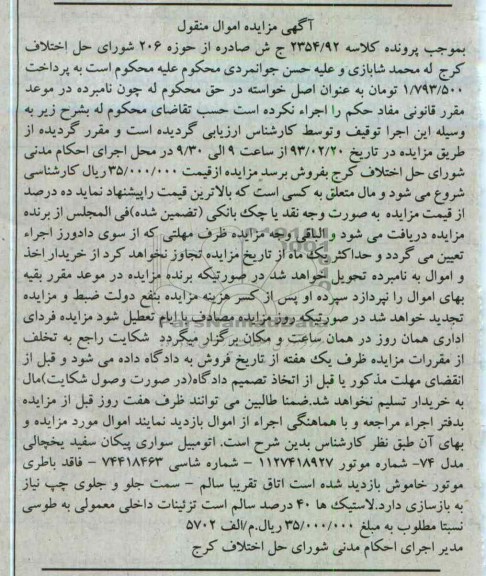 آگهی مزایده اموال منقول
بموجب پرونده کلاسه ۲۳۵۴/۹۲ ج ش صادره از حوزه ۲۰۶ شورای حل اختلاف
کرج له محمد شابازی و علیه حسن جوانمردی محکوم علیه محکوم است به پرداخت
۱/۷۹۳/۵۰۰ تومان به عنوان اصل خواسته در حق محکوم له چون نامبرده در موعد
مقرر قانونی مفاد حکم را اجراء نکرده است حسب تقاضای محکوم له بشرح زیر به
وسیله این اجرا توقیف وتوسط کارشناس ارزیابی گردیده است و مقرر گردیده از
طریق مزایده در تاریخ ۹۳/۰۲/۲۰ از ساعت ۹ الی ۹/۳۰ در محل اجرای احکام مدنی
شورای حل اختلاف کرج بفروش برسد.مزایده ازقیمت ۳۵/۰۰۰/۰۰۰ ریال کارشناسی
شروع می شود و مال متعلق به کسی است که بالاترین قیمت راپیشنهاد نماید ده درصد
از قیمت مزایده به صورت وجه نقد یا چک بانکی (تضمین شده)فی المجلس از برنده
مزایده دریافت می شود و الباقی وجه مزایده ظرف مهلتی که از سوی دادورز اجراء
تعیین می گردد و حداکثر یک ماه از تاریخ مزایده تجاوز نخواهد کرد از خریدار اخذ
و اموال به نامبرده تحویل خواهد شد در صورتیکه برنده مزایده در موعد مقرر بقیه
بهای اموال را نپردازد سپرده او پس از کسر هزینه مزایده بنفع دولت ضبط و مزایده
تجدید خواهد شد در صورتیکه روز مزایده مصادف با ایام تعطیل شود مزایده فردای
اداری همان روز در همان ساعت و مکان برگزار میگردد شکایت راجع به تخلف
از مقررات مزایده ظرف یک هفته از تاریخ فروش به دادگاه داده می شود و قبل از
انقضای مهلت مذکور یا قبل از اتخاذ تصمیم دادگاه(در صورت وصول شکایت)مال
به خریدار تسلیم نخواهد شد.ضمنا طالبین می توانند ظرف هفت روز قبل از مزایده
بدفتر اجراء مراجعه و با هماهنگی اجراء از اموال بازدید نمایند اموال مورد مزایده و
بهای آن طبق نظر کارشناس بدین شرح است. اتومبیل سواری پیکان سفید یخچالی
مدل ۷۴- شماره موتور ۱۱۲۷۴۱۸۹۲۷ – شماره شاسی ۷۴۴۱۸۴۶۳ – فاقد باطری
موتور خاموش بازدید شده است اتاق تقریبا سالم – سمت جلو و جلوی چپ نیاز
به بازسازی دارد.لاستیک ها ۴۰ درصد سالم است تزئینات داخلی معمولی به طوسی
نسبتا مطلوب به مبلغ ۳۵/۰۰۰/۰۰۰ ریال.م/الف ۵۷۰۲
مدیر اجرای احکام مدنی شورای حل اختلاف کرج